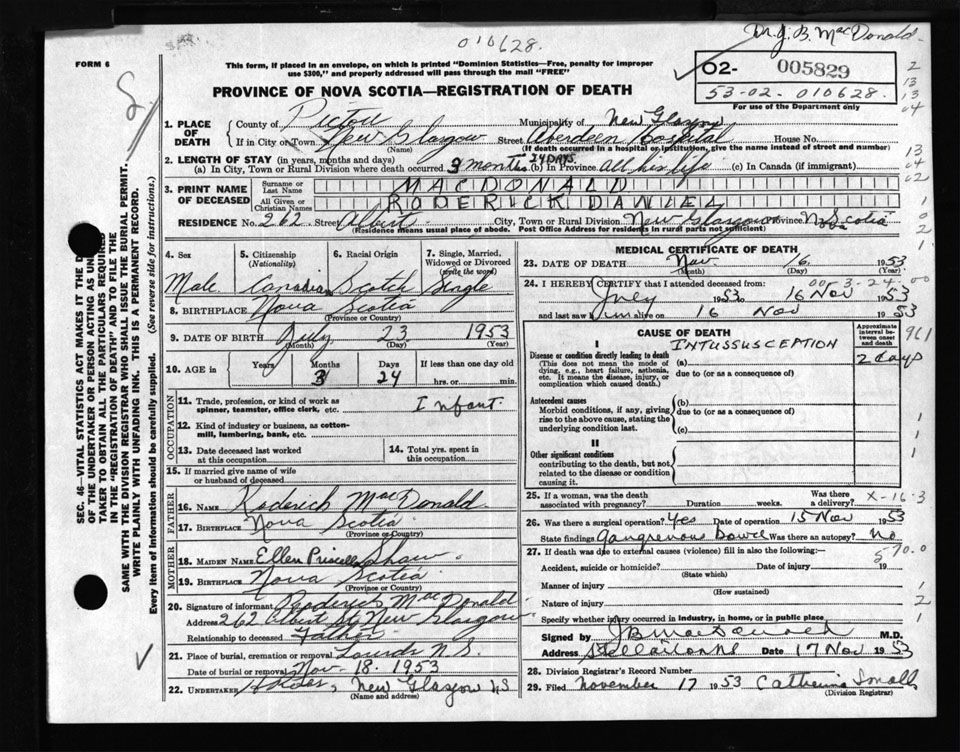 Dr. J. B. MacDonald.
010628.
FORM 6
This form, if placed in an envelope, on which is printed "Dominion Statistics—Free, penalty for improper use $300," and properly addressed will pass through the mail "FREE"
O2- 005829
53-02. 010628.
For use of the Department only
PROVINCE OF NOVA SCOTIA—REGISTRATION OF DEATH
1. PLACE OF DEATH
County of Pictou Municipality of New Glasgow
If in City or Town New Glasgow Street Aberdeen Hospital House No.
(Name) (If death occurred in a hospital or institution, give the name instead of street and number)
2. LENGTH OF STAY (in years, months and days)
(a) In City, Town or Rural Division where death occurred 3 months 24 DAYS (b) In Province All his life (c) In Canada (if immigrant)
3. PRINT NAME OF DECEASED
Surname or Last Name MACDONALD
All Given or Christian Names RODERICK DANIEL
RESIDENCE No. 262 Street Albert City, Town or Rural Division New Glasgow Province N. Scotia
(Residence means usual place of abode. Post Office Address for residents in rural parts not sufficient)
4. Sex Male
5. Citizenship (Nationality) Canadian
6. Racial Origin Scotch
7. Single, Married, Widowed or Divorced (write the word) Single
8. BIRTHPLACE Nova Scotia
(Province or Country)
9. DATE OF BIRTH July 23 1953
(Month) (Day) (Year)
10. AGE in Years Months 3 Days 24 If less than one day old hrs. or min.
OCCUPATION
11. Trade, profession, or kind of work as spinner, teamster, office clerk, etc. Infant.
12. Kind of industry or business, as cotton-mill, lumbering, bank, etc.
13. Date deceased last worked at this occupation
14. Total yrs. spent in this occupation
15. If married give name of wife or husband of deceased
FATHER
16. NAME Roderick MacDonald
17. BIRTHPLACE Nova Scotia
(Province or Country)
MOTHER
18. MAIDEN NAME Ellen Priscella Shaw.
19. BIRTHPLACE Nova Scotia
(Province or Country)
20. Signature of informant Roderick MacDonald
Address 262 Albert St New Glasgow
Relationship to deceased Father
21. Place of burial, cremation or removal Lourdes N.S.
Date of burial or removal Nov. 18. 1953
22. UNDERTAKER New Glasgow NS
(Name and address)
MEDICAL CERTIFICATE OF DEATH
23. DATE OF DEATH Nov. 16 1953
(Month) (Day) (Year)
00 3-24-00
24. I HEREBY CERTIFY that I attended deceased from:
July 1953 to 16 Nov 1953
and last saw him alive on 16 Nov 1953
CAUSE OF DEATH
Approximate interval between onset and death
961
I
Disease or condition directly leading to death (a) INTUSSUSCEPTION 2 days
(This does not mean the mode of dying, e.g., heart failure, asthenia, etc. It means the disease, injury, or complication which caused death.)
due to (or as a consequence of)
Antecedent causes
Morbid conditions, if any, giving rise to the above cause, stating the underlying condition last.
(b)
due to (or as a consequence of)
(c)
II
Other significant conditions contributing to the death, but not related to the disease or condition causing it.
25. If a woman, was the death associated with pregnancy? Duration weeks. Was there a delivery? X-16-3
26. Was there a surgical operation? Yes Date of operation 15 Nov 1953
State findings Gangrenous Bowel Was there an autopsy? No
570.0
27. If death was due to external causes (violence) fill in also the following:—
Accident, suicide or homicide? Date of injury 19
(State which)
Manner of injury
(How sustained)
Nature of injury
Specify whether injury occurred in industry, in home, or in public place
Signed by JB MacDonald M.D.
Address Stellarton NS Date 17 Nov 1953
28. Division Registrar's Record Number
29. Filed November 17 1953 Catherine Small
(Division Registrar)
SEC. 46—VITAL STATISTICS ACT MAKES IT THE D
OF THE UNDERTAKER OR PERSON ACTING AS UN
TAKER TO OBTAIN ALL THE PARTICULARS REQUIRE
IN THE "REGISTRATION OF DEATH" AND TO FILE THE
SAME WITH THE DIVISION REGISTRAR WHO SHALL ISSUE THE BURIAL PERMIT.
WRITE PLAINLY WITH UNFADING INK. THIS IS A PERMANENT RECORD.
Every item of Information should be carefully supplied. (See reverse side for instructions.)
2
13
13
04
13
04
02
1
0
2
1
1
1
1
1
2